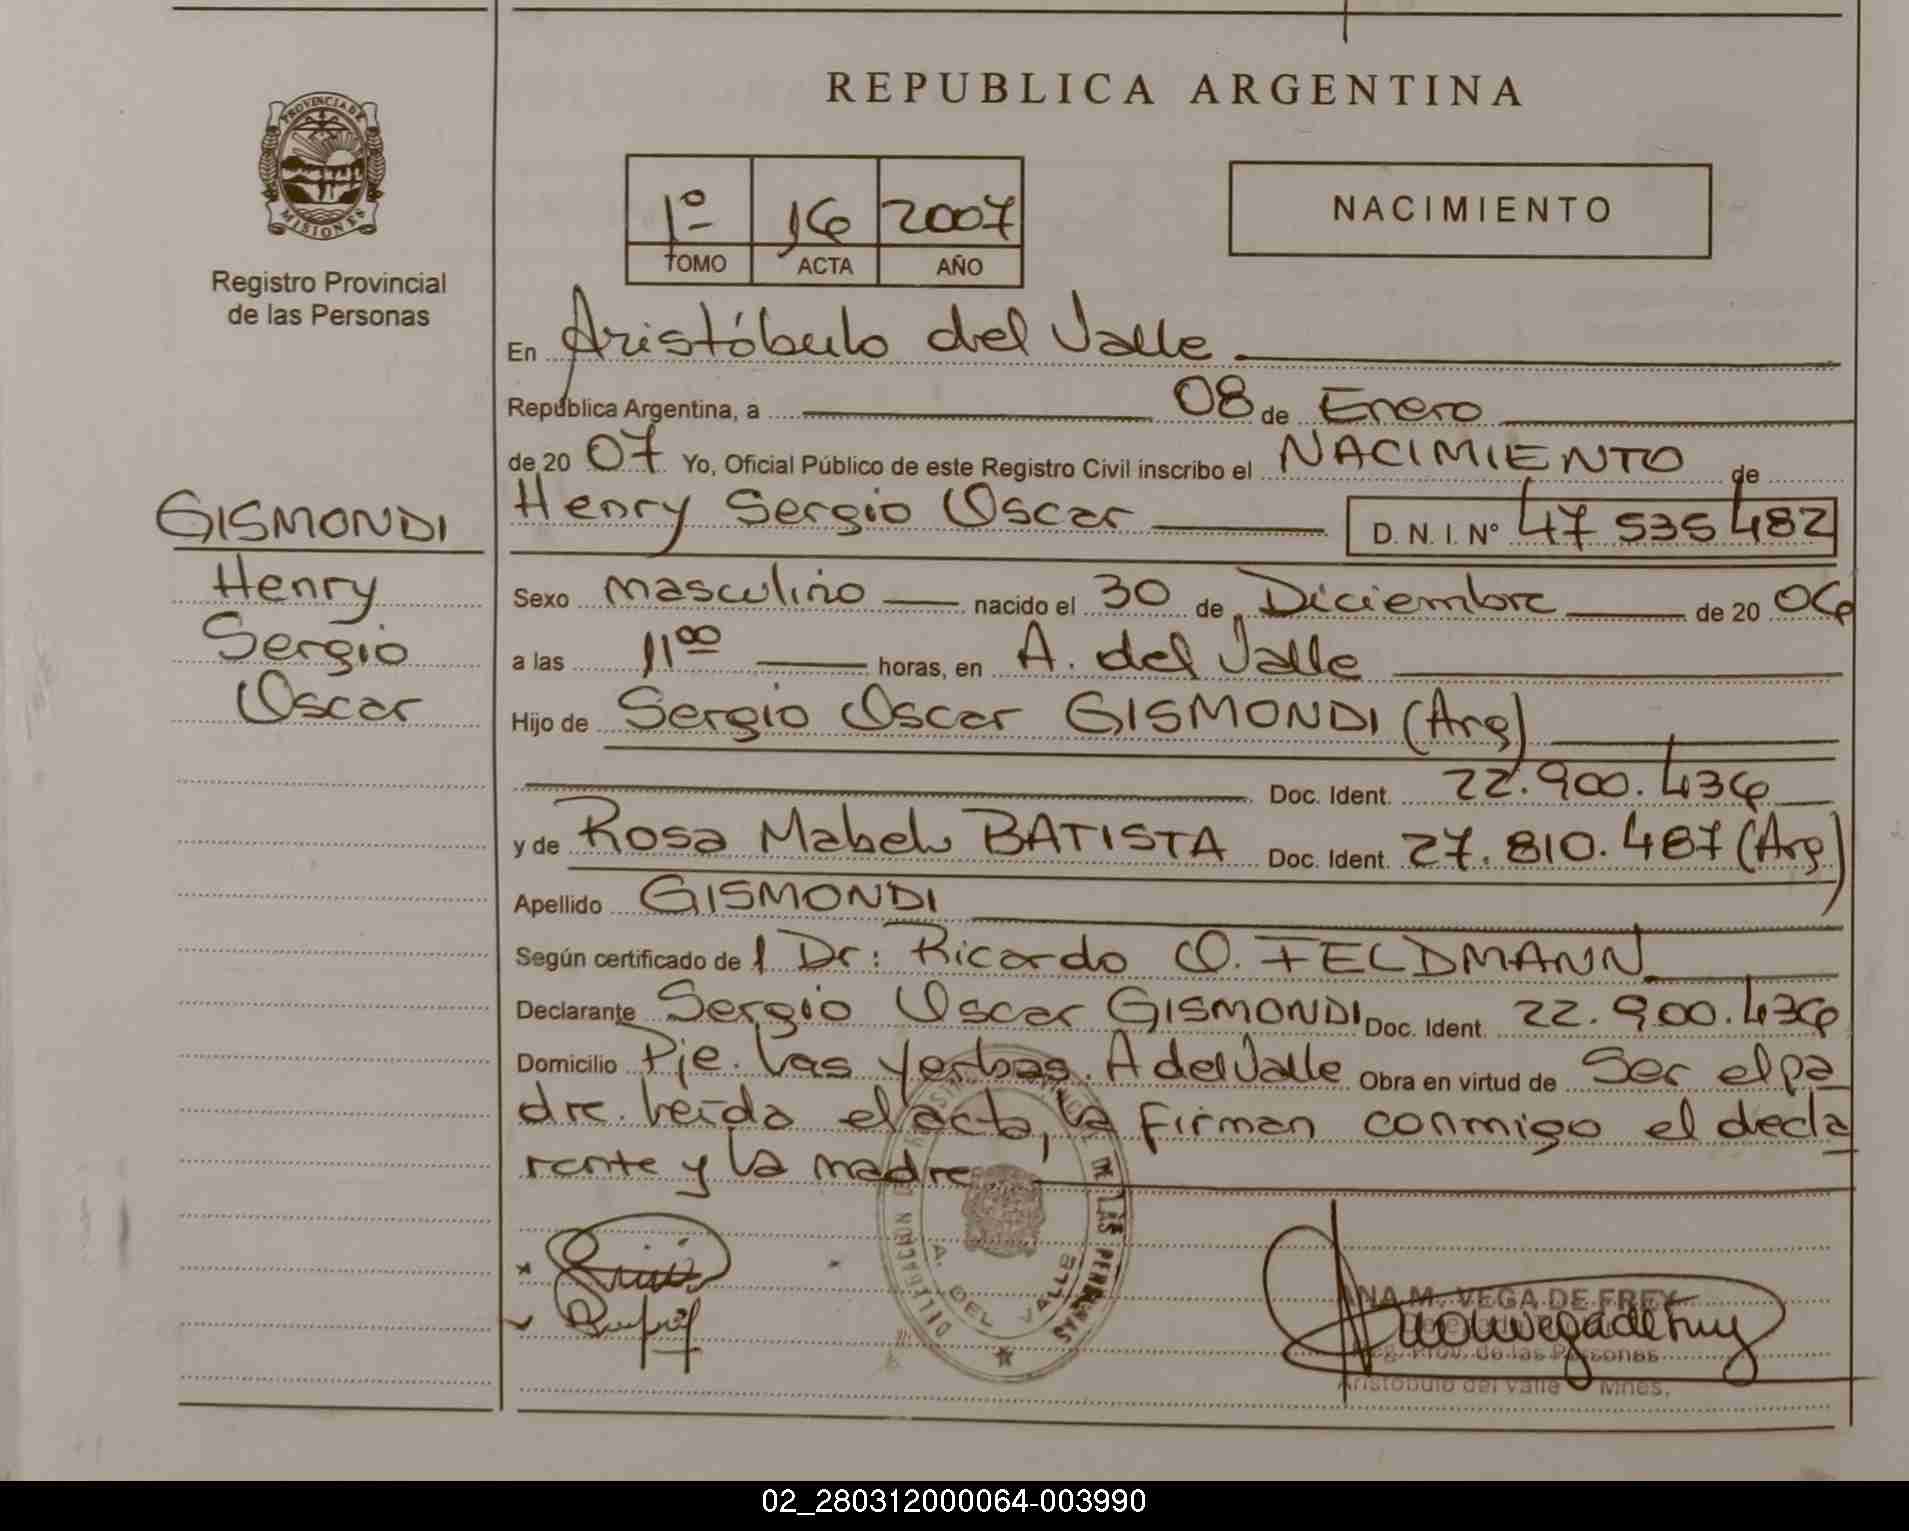 REPUBLICA ARGENTINA
PROVINCIA DE
MISIONES
Registro Provincial
de las Personas
1º 16 2007
TOMO ACTA AÑO
NACIMIENTO
En Aristóbulo del Valle
República Argentina, a 08 de Enero
de 20 07 Yo, Oficial Público de este Registro Civil inscribo el NACIMIENTO de
Henry Sergio Oscar D. N. I. Nº 47 535 482
GISMONDI
Henry
Sergio
Oscar
Sexo masculino nacido el 30 de Diciembre de 20 06
a las 11⁰⁰ horas, en A. del Valle
Hijo de Sergio Oscar GISMONDI (Arg)
Doc. Ident. 22.900.436
y de Rosa Mabel BATISTA Doc. Ident. 27.810.487 (Arg)
Apellido GISMONDI
Según certificado de l Dr: Ricardo O. FELDMANN
Declarante Sergio Oscar GISMONDI Doc. Ident. 22.900.436
Domicilio Pje. Las Yerbas. A del Valle Obra en virtud de Ser el pa
dre. Leída el acta, la firman conmigo el decla
rante y la madre
DELEGACION
DE LAS PERSONAS
A. DEL VALLE
ANA M. VEGA DE FREY
Reg. Prov. de las Personas
Aristóbulo del Valle Mnes.
02_280312000064-003990